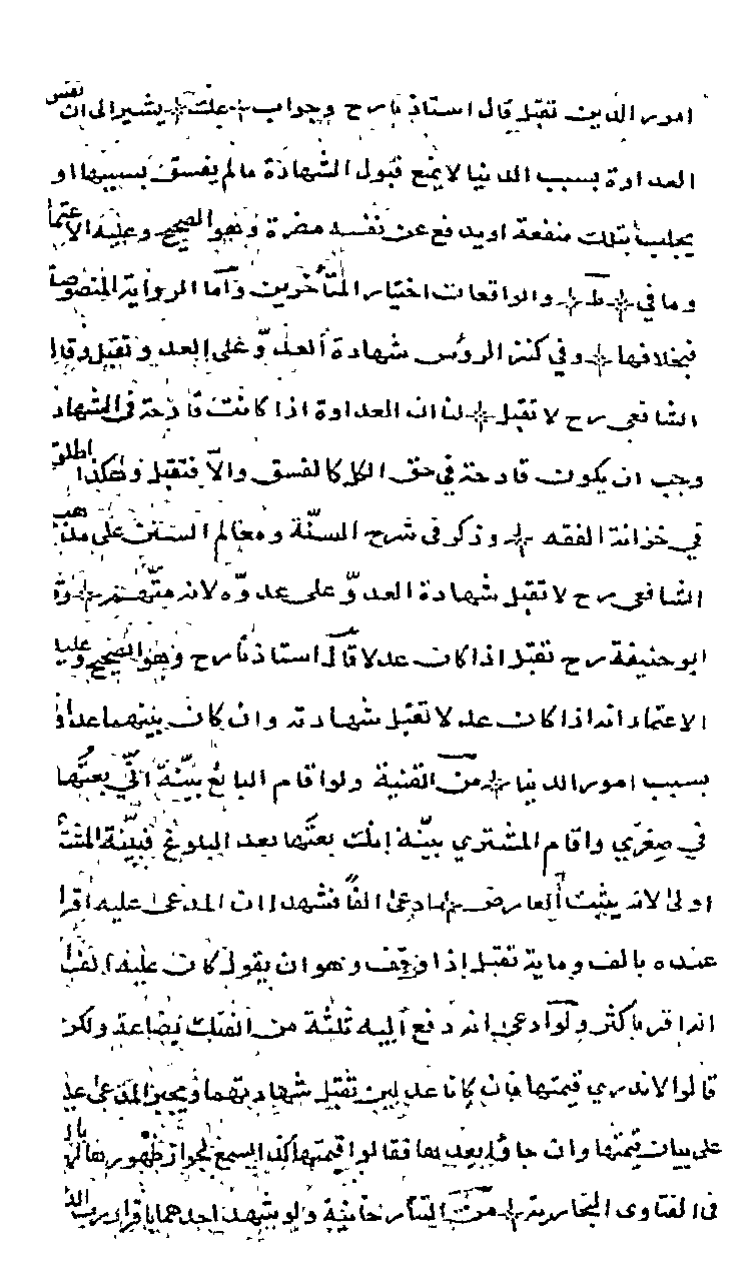 امور الدين تقبل قال استاذنا رح وجواب علت يشير الى ان نفس
العداوة بسبب الدنيا لا يمنع قبول الشهادة ما لم يفسق بسببها او
يجلب بتلك منفعة او يدفع عن نفسه مضرة وهو الصحيح وعليه الاعتما
وما في ط والواقعات اختيار المتأخرين واما الرواية المنصوصة
فبخلافها وفي كنز الرؤس شهادة العدو على العدو تقبل وقال
الشافعي رح لا تقبل لنا ان العداوة اذا كانت قادحة في الشهاد
وجب ان يكون قادحة في حق الكل كالفسق والا فتقبل وهكذا اطلق
في خزانة الفقه وذكر في شرح السنة ومعالم السنن على مذهب
الشافعي رح لا تقبل شهادة العدو على عدوه لانه متهم وق
ابو حنيفة رح تقبل اذا كان عدلا قال استاذنا رح وهو الصحيح وعليه
الاعتماد انه اذا كان عدلا تقبل شهادته وان كان بينهما عداو
بسبب امور الدنيا من القنية ولو اقام البائع بينة اني بعتها
في صغري واقام المشتري بينة انك بعتها بعد البلوغ فبينة المشت
اولى لانه يثبت العارض ادعى الفا فشهدا ان المدعى عليه اقرا
عنده بالف وماية تقبل اذا وفق وهو ان يقول كان عليه الف
انه اقر باكثر ولو ادعى انه دفع اليه ثلثة من بضاعة ولكن
قالوا لا ندري قيمتها فان كانا عدلين تقبل شهادتهما ويجبر المدعى علي
على بيان قيمتها وان جاؤا بعدها فقالوا قيمتها كذا يسمع لجواز ظهور
في الفتاوى البخارية من التتارخانية ولو شهد احدهما باقرار رب